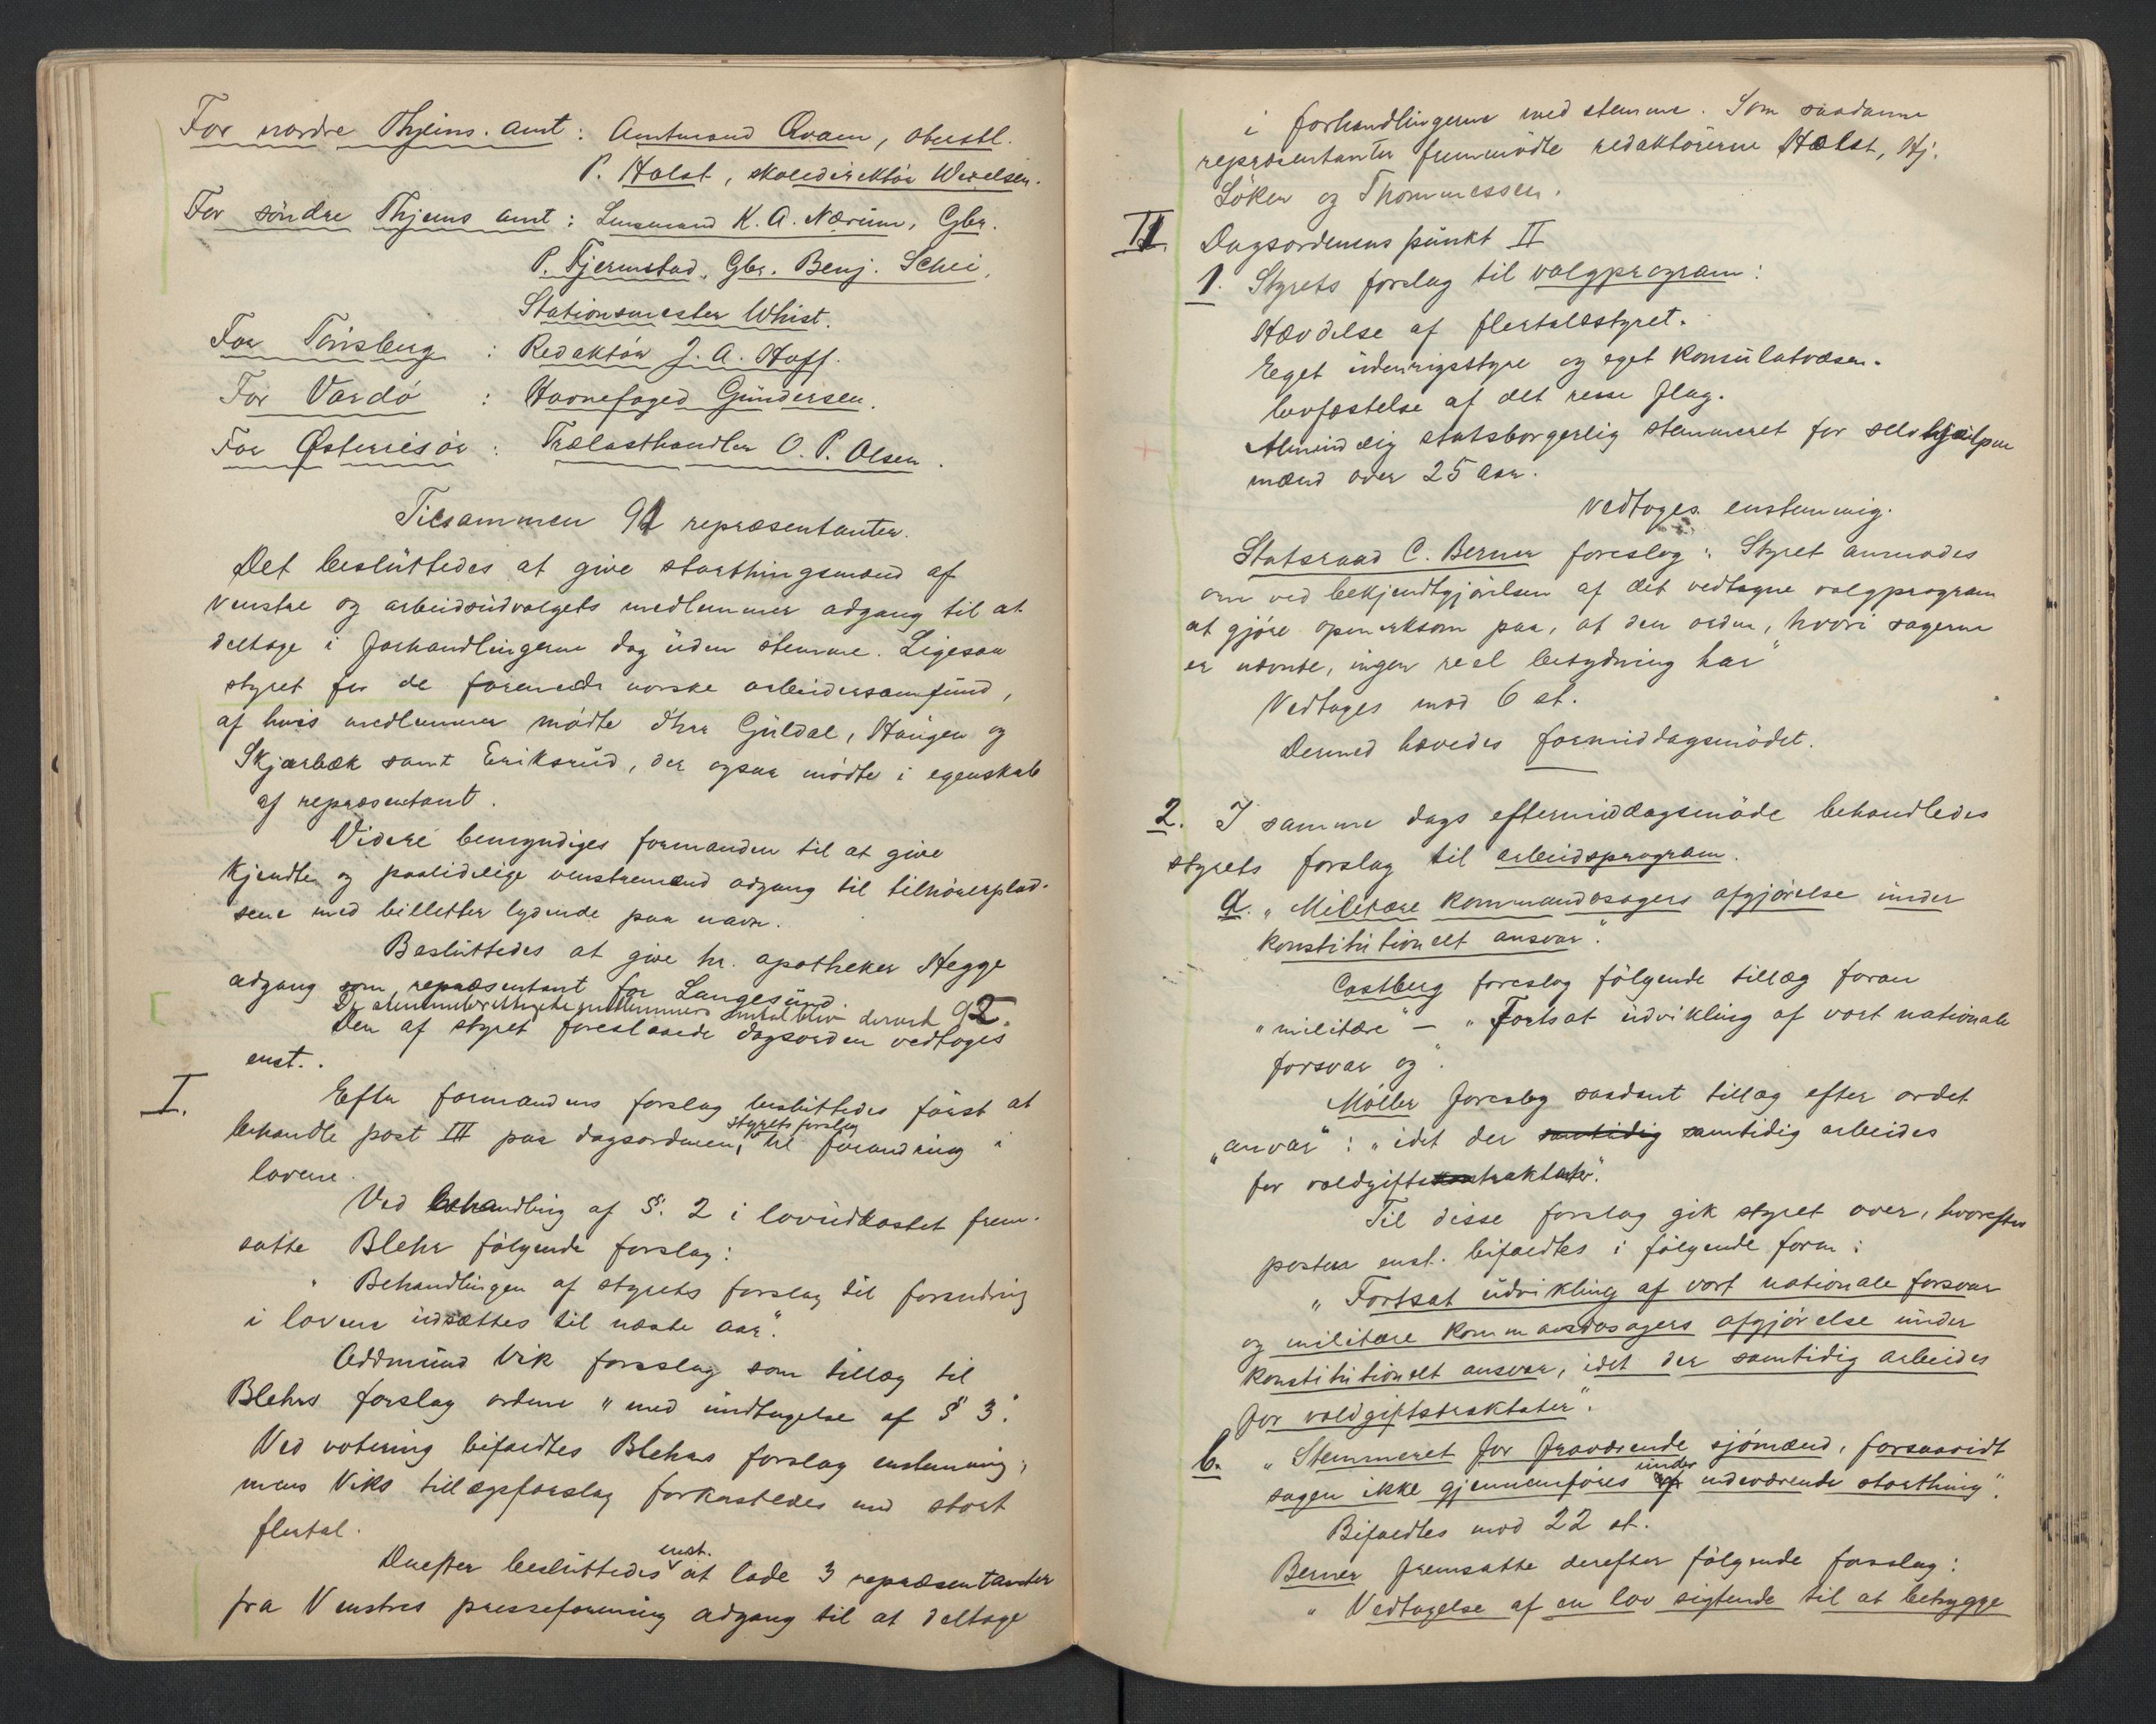 For nordre Thjems. amt: Amtmand Qvam, oberstl.
P. Holst, skoledirektör Wexelsen.
For söndre Thjems amt: Lensmand K. A. Nærum, Gbr.
P. Fjermstad, Gbr. Benj. Schei,
Stationsmester Whist.
For Tönsberg : Redaktör J. A. Hoff.
For Vardö : Havnefoged Gundersen.
For Østerrisör : Trælasthandler O. P. Olsen.
Tilsammen 91 repræsentanter.
Det besluttedes at give storthingsmænd af
venstre og arbeidsudvalgets medlemmer adgang til at
deltage i forhandlingerne dog uden stemme. Ligesaa
styret for de forenede norske arbeidersamfund,
af hvis medlemmer mödte d'hrr Guldal, Haugen og
Skjærbæk samt Eriksrud, der ogsaa mödte i egenskab
af repræsentant.
Videre bemyndiges formanden til at give
kjendte og paalidelige venstremænd adgang til tilhörerplad-
sene med billetter lydende paa navn.
Besluttedes at give hr. apotheker Hegge
adgang som repræsentant for Langesund.
De stemmeberettigede medlemmers antal blev derved 92.
Den af styret foreslaaede dagsorden vedtoges
enst..
I. Efter formandens forslag besluttedes först at
behandle post III paa dagsordenen, styrets forslag til forandring i
lovene.
Ved behandling af §. 2 i lovudkastet frem-
satte Blehr fölgende forslag:
"Behandlingen af styrets forslag til forandring
i lovene udsættes til næste aar".
Oddmund Vik foreslog som tillæg til
Blehrs forslag ordene "med undtagelse af § 3".
Ved votering bifaldtes Blehrs forslag enstemmig,
mens Viks tillægsforslag forkastedes med stort
flertal.
Derefter besluttedes enst. at lade 3 repræsentanter
fra Venstres presseforening adgang til at deltage
i forhandlingerne med stemme. Som saadanne
repræsentanter fremmödte redaktörerne Holst, Hj.
Löken og Thommessen.
II. Dagsordenens punkt II
1. Styrets forslag til valgprogram:
Hævdelse af flertalsstyret.
Eget udenrigsstyre og eget konsulatvæsen.
Lovfæstelse af det rene flag.
Almindelig statsborgerlig stemmeret for selvhjulpne
mænd over 25 aar.
Vedtoges enstemmig.
Statsraad C. Berner foreslog: Styret anmodes
om ved bekjendtgjörelsen af det vedtagne valgprogram
at gjöre opmerksom paa, at den orden, hvori sagerne
er nævnte, ingen reel betydning har"
Vedtages mod 6 st.
Dermed hævedes formiddagsmödet.
2. I samme dags eftermiddagsmöde behandledes
styrets forslag til arbeidsprogram.
a. "Militære kommandosagers afgjörelse under
konstitutionelt ansvar".
Castberg foreslog fölgende tillæg foran
"militære" — "Fortsat udvikling af vort nationale
forsvar og".
Möller foreslog saadant tillæg efter ordet
"ansvar": "idet der samtidig samtidig arbeides
for voldgiftstraktater".
Til disse forslag gik styret over, hvorefter
posten enst. bifaldtes i fölgende form:
"Fortsat udvikling af vort nationale forsvar
og militære kommandosagers afgjörelse under
konstitutionelt ansvar, idet der samtidig arbeides
for voldgiftstraktater".
b. "Stemmeret for fraværende sjömænd, forsaavidt
sagen ikke gjennemföres af under nuværende storthing".
Bifaldtes mod 22 st.
Berner fremsatte derefter fölgende forslag:
"Vedtagelse af en lov sigtende til at betrygge